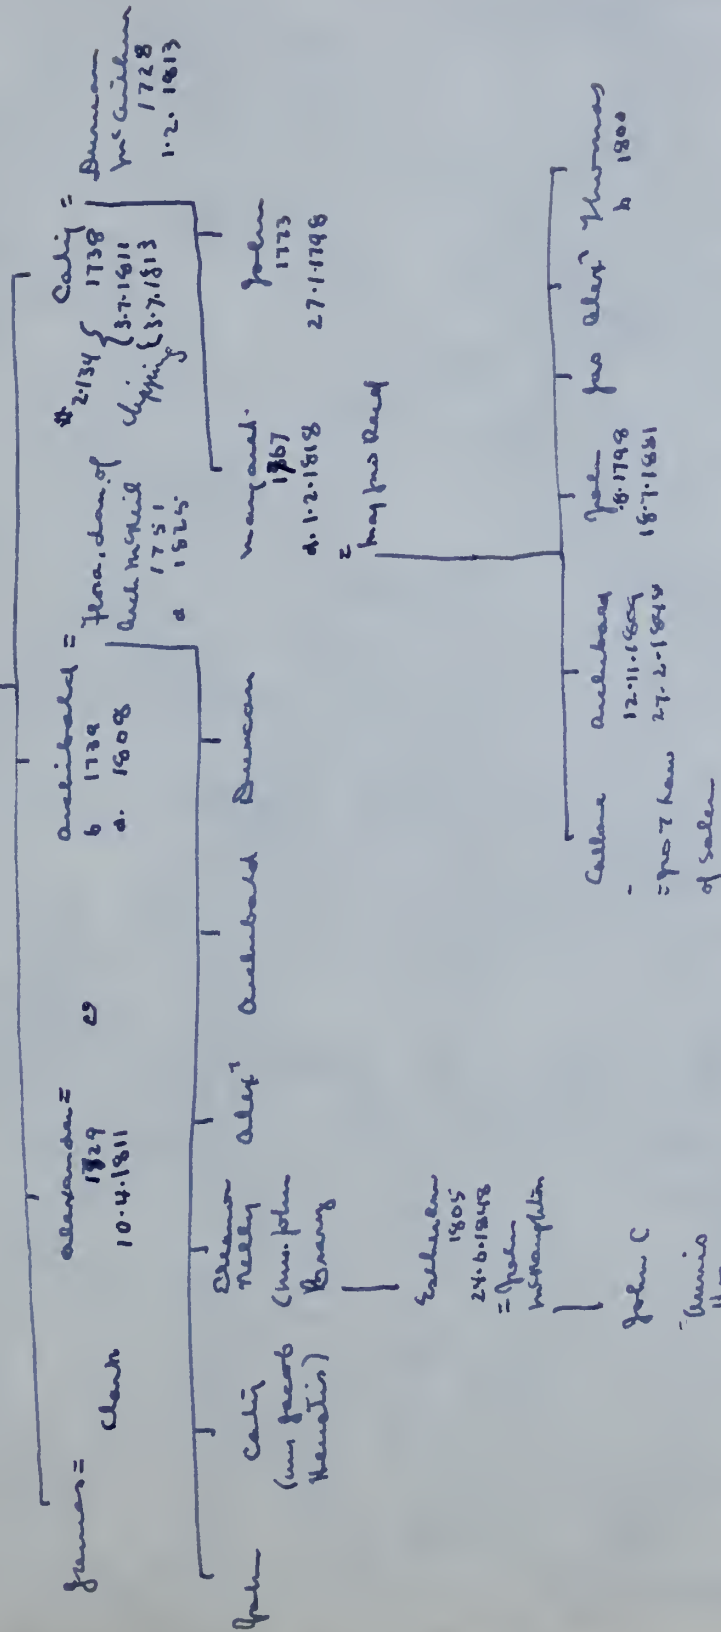 James =
Clark
Alexander =
1729
10.4.1811
Archibald =
b 1739
d. 1808
Flora, dau. of
Arch McNeil
1751
d 1825
# 2.134
Caty =
1738
3.7.1811
3.7.1813
clipping
Duncan
McArthur
1728
1.2.1813
John
Caty
(mrs Jacob
Eleanor
Nelly
(mrs. John
Alexr
Archibald
Duncan
Margaret
1767
d. 1.2.1818
=
Maj Jno Reed
John
1773
27.1.1798
Esther
1805
24.6.1848
= John
McNaughton
John C
Catharine
-
= Jno
of Salem
Archibald
12.11.1809
27.2.1848
John
.8.1798
18.7.1881
Jas
Alexr
Thomas
b 1800